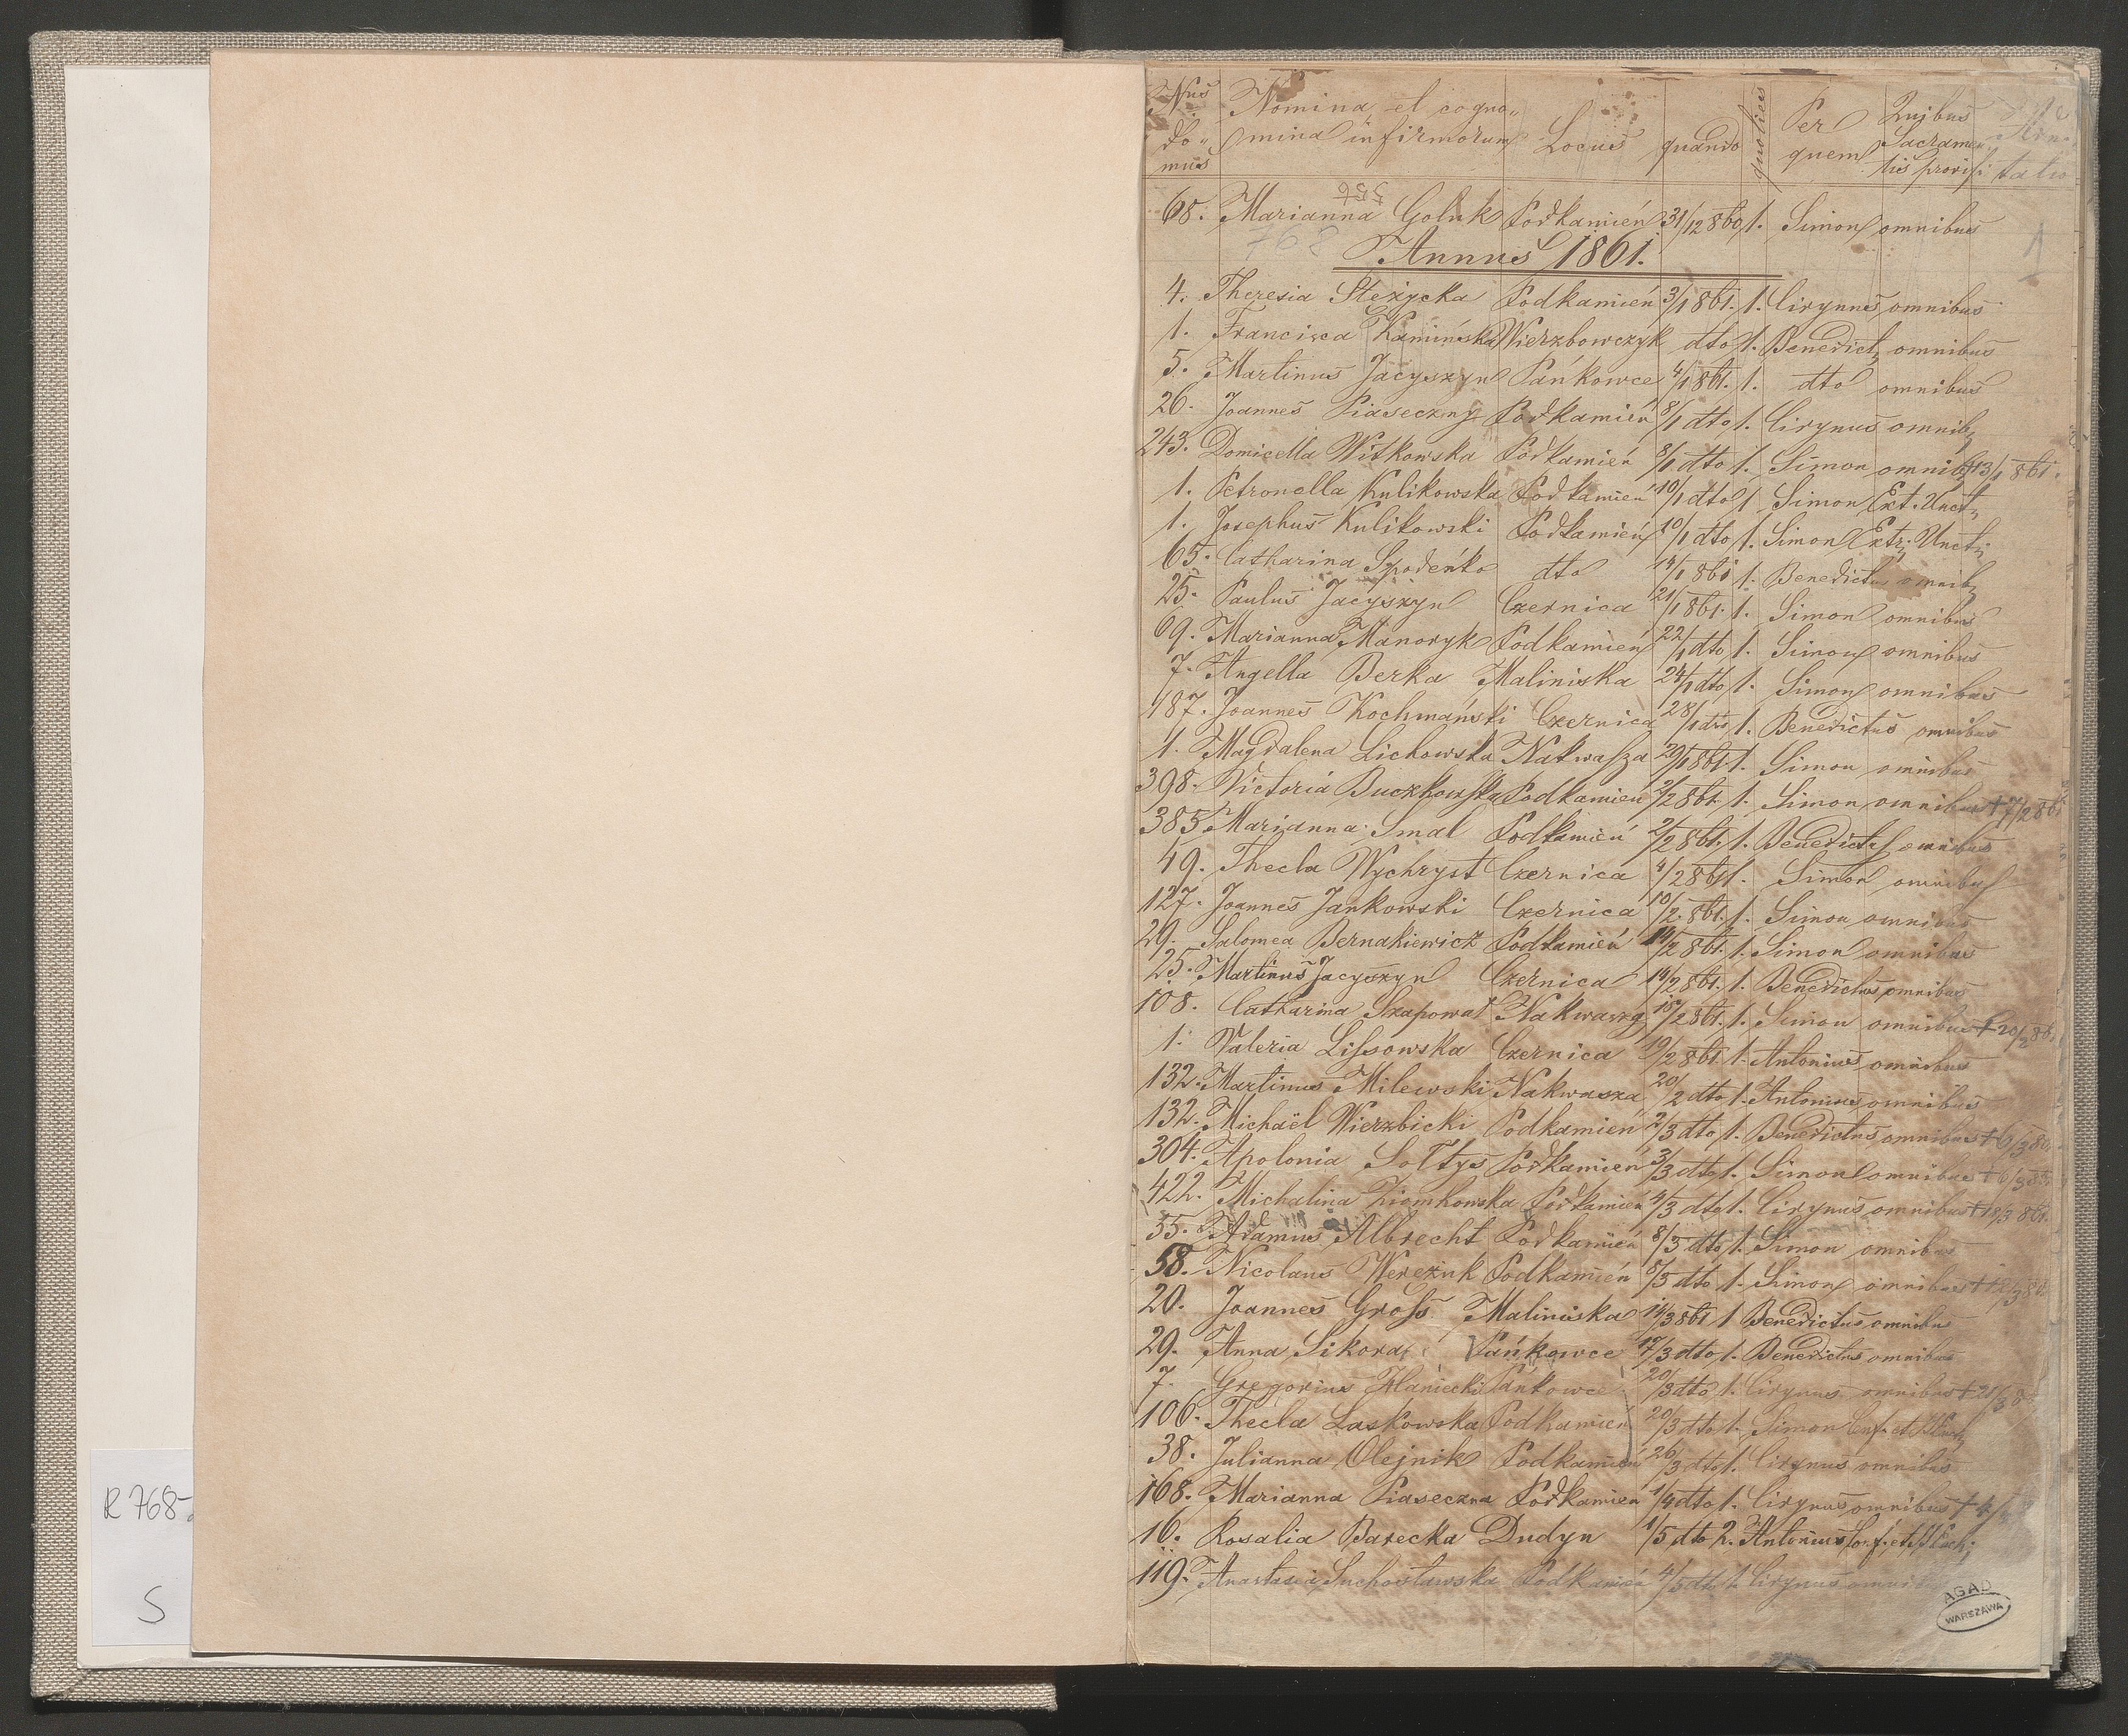 Nus domus Nomina et cognomina infirmorum Locus quando quoties Per quem Quibus Sacramentis provisi
68. Marianna Goluk Podkamień 31/12 860 1. Simon omnibus
768
1
Annus 1861.
4. Theresia Stežycka Podkamień 3/1 861. 1. Cirynus omnibus
1. Francisca Kamińska Wierzbowczyk dto 1. Benedict omnibus
5. Martinus Jacyszyn Pańkowce 4/1 861. 1. dto omnibus
26. Joannes Piaseczny Podkamień 8/1 dto 1. Cirynus omnib
243. Domicella Witkowska Podkamień 8/1 dto 1. Simon omnib + 13/1 861.
1. Petronella Kulikowska Podkamień 10/1 dto 1 Simon Ext. Unct
1. Josephus Kulikowski Podkamień 10/1 dto 1. Simon Extr. Uncti
65. Catharina Spodeńko dto 14/1 861 1. Benedictus omnib
25. Paulus Jacyszyn Czernica 21/1 861. 1. Simon omnibus
69. Marianna Manoryk Podkamień 22/1 dto 1. Simon omnibus
7. Angella Berka Maliniska 24/1 dto 1. Simon omnibus
187. Joannes Kochmański Czernica 28/1 dto 1. Benedictus omnibus
1. Magdalena Lichowska Nakwasza 29/1 861. 1. Simon omnibus
398. Victoria Buczkowska Podkamień 2/2 861. 1. Simon omnibus + 7/2 861
385. Marianna Smal Podkamień 2/2 861. 1. Benedictus omnibus
49. Thecla Wychryst Czernica 4/2 861 1. Simon omnibus
127. Joannes Jankowski Czernica 10/2. 861. 1. Simon omnibus
29. Salomea Bernakiewicz Podkamień 14/2 861. 1. Simon omnibus
25. Martinus Jacyszyn Czernica 14/2 861. 1. Benedictus omnibus
108. Catharina Szapował Nakwaszy 18/2 861. 1. Simon omnibus + 20/2 861
1. Valeria Lissowska Czernica 19/2 861. 1. Antonius omnibus
132. Martinus Milewski Nakwasza 20/2 dto 1. Antonius omnibus
132. Michaël Wierzbicki Podkamień 2/3 dto 1. Benedictus omnibus + 6/3
304. Apolonia Sołtys Podkamień 3/3 dto 1. Simon omnibus + 6/3
422. Michalina Ziomkowska Podkamień 4/3 dto 1. Cirynus omnibus + 18/3 861.
55. Adamus Albrecht Podkamień 8/3 dto 1. Simon omnibus
58. Nicolaus Werezuk Podkamień 8/3 dto 1. Simon omnibus + 12/3
20. Joannes Gross Maliniska 14/3 861 1 Benedictus omnibus
29. Anna Sikora Pańkowce 17/3 dto 1. Benedictus omnibus
7. Gregorius Hłaniecki Pańkowce 20/3 dto 1. Cirynus omnibus + 21/3
106. Thecla Laskowska Podkamień 20/3 dto 1. Simon Conf. et
38. Julianna Olejnik Podkamień 26/3 dto 1. Cirynus omnibus
168. Marianna Piaseczna Podkamień 1/4 dto 1. Cirynus omnibus +
16. Rosalia Barecka Dudyn 1/5 dto 2. Antonius Conf. et
119. Anastasia Suchosławska Podkamień 4/5 dto 1. Cirynus omnibus
AGAD
WARSZAWA
R 768
S